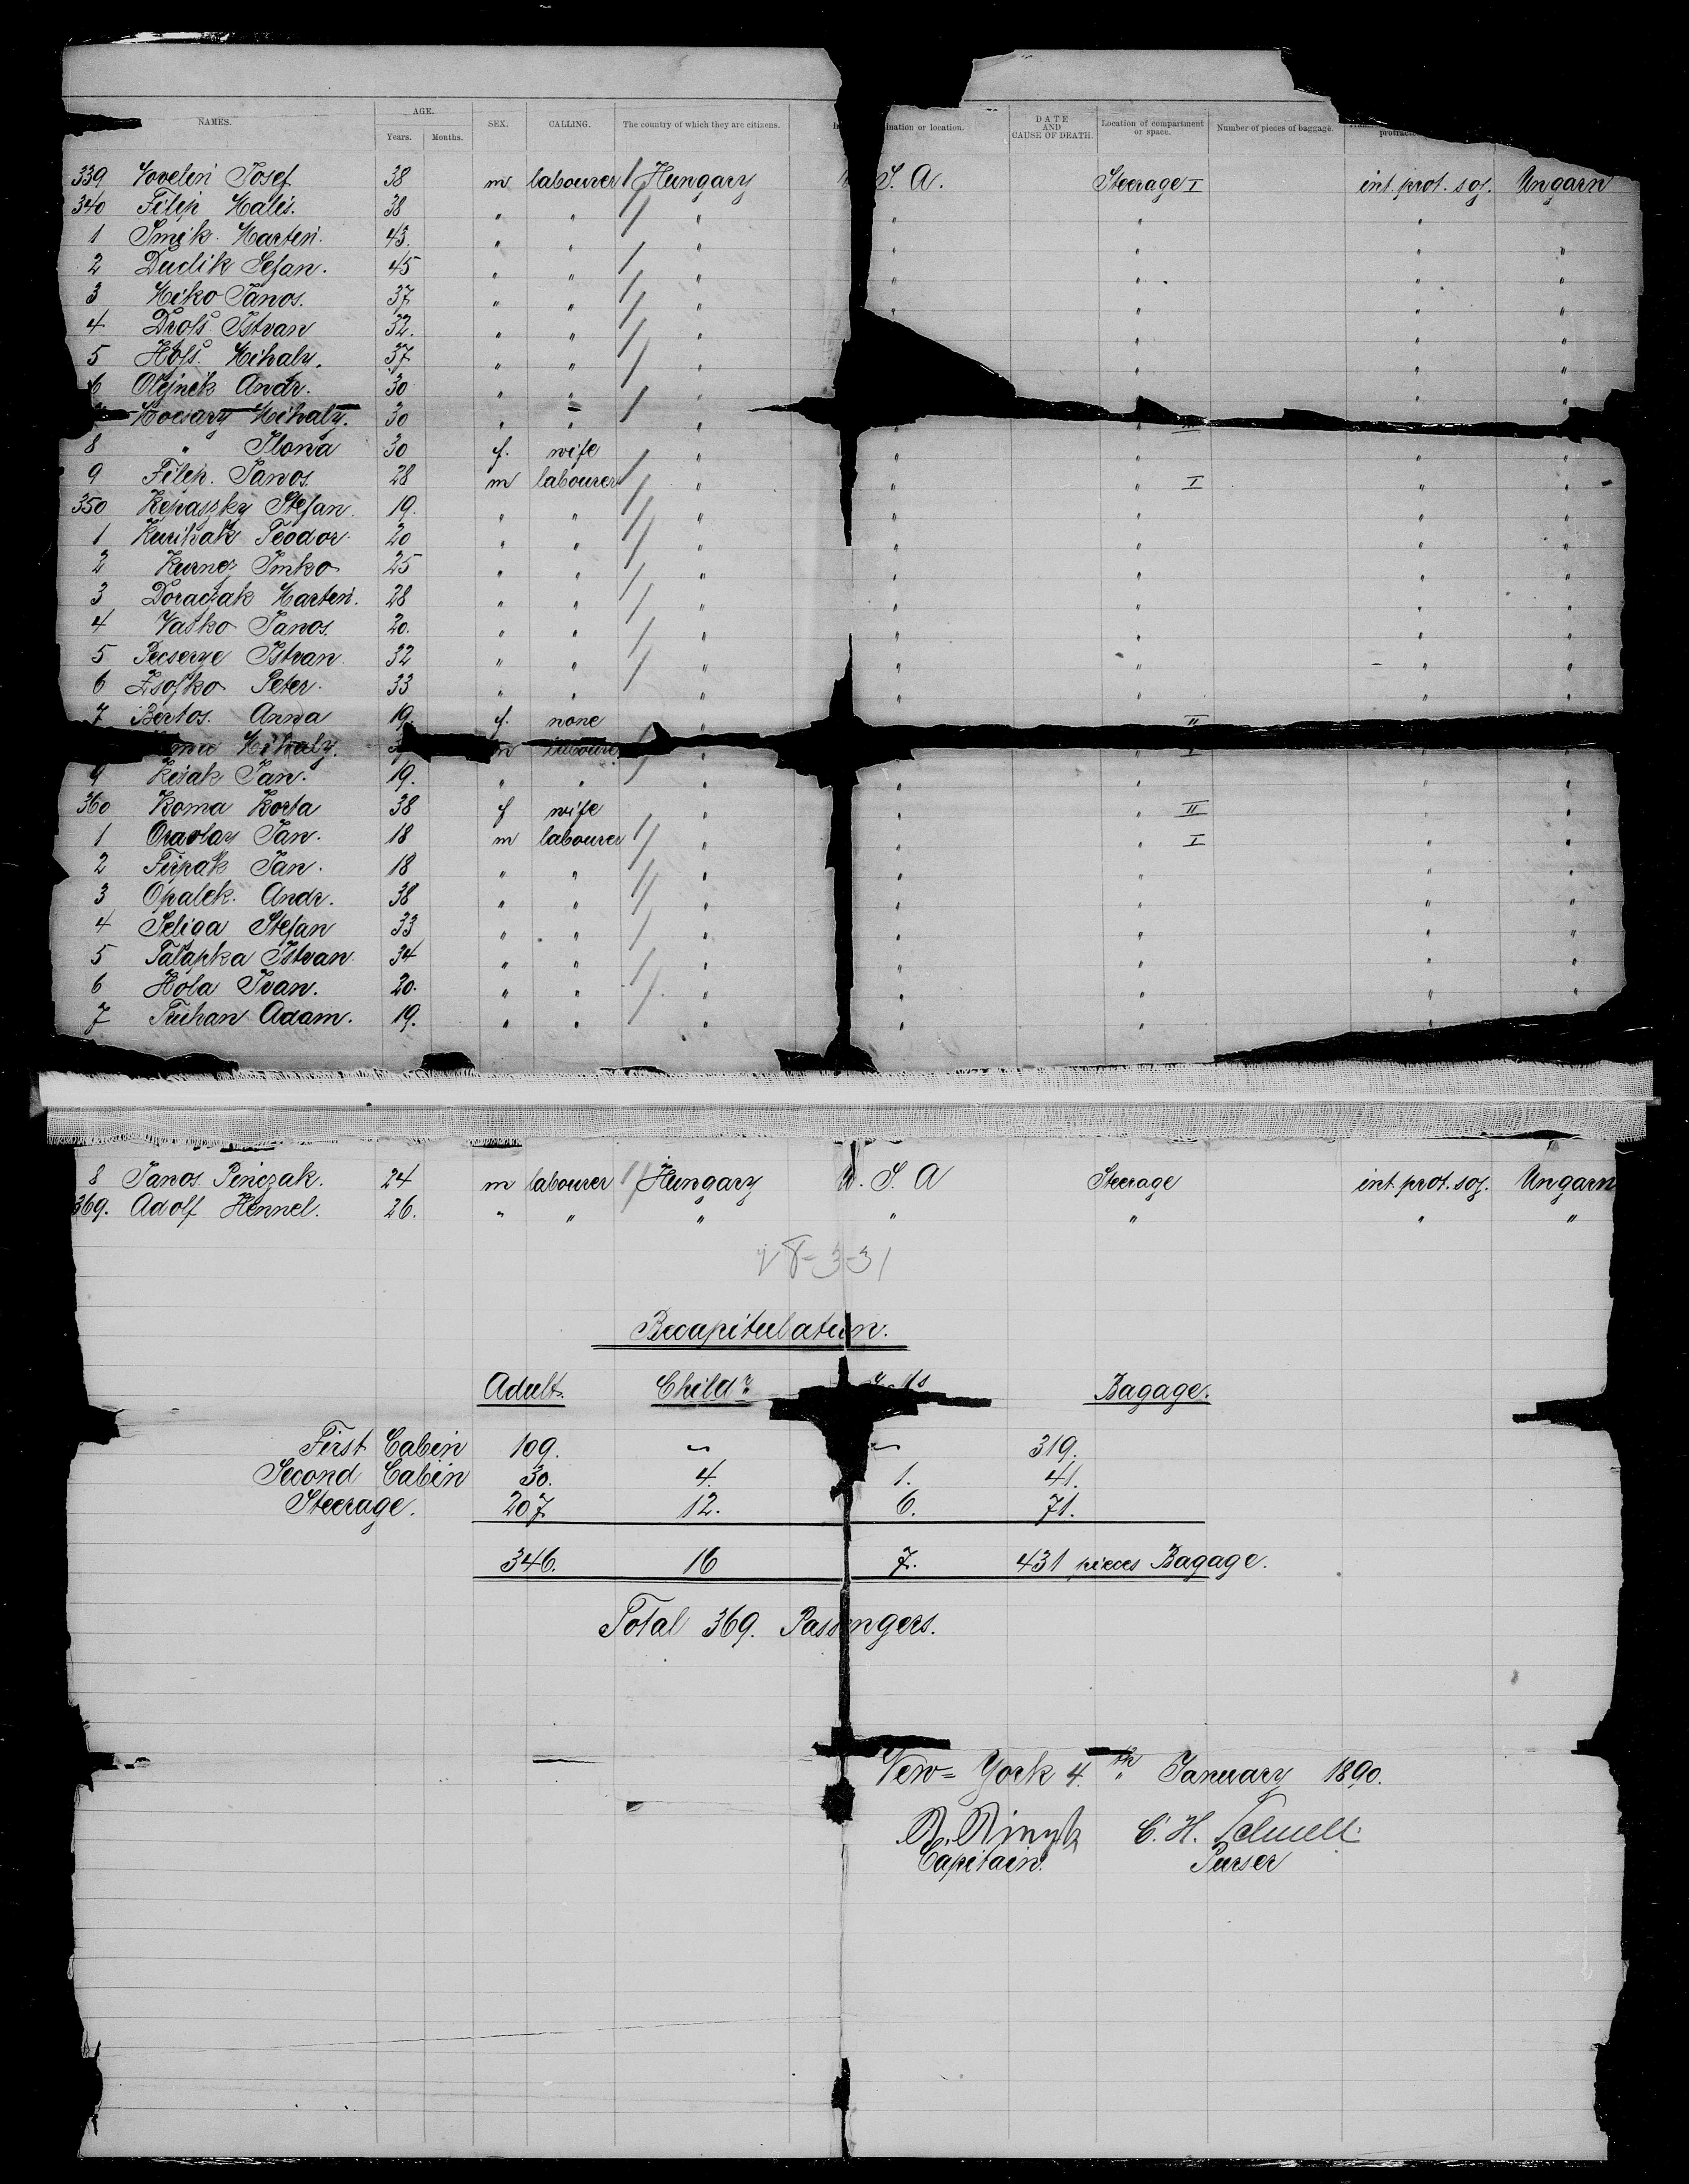 NAMES. AGE. Years. Months. SEX. CALLING. The country of which they are citizens. ination or location. DATE AND CAUSE OF DEATH. Location of compartment or space. Number of pieces of baggage. protract
339 Vovelin Josef 38 m labourer Hungary S. A. Steerage I int. prot. soj. Ungarn
340 Filip Matis. 38 " " " " " "
1 Smik. Marten. 43. " " " " " " "
2 Dudik Stefan. 45 " " " " " " "
3 Miko Janos. 37 " " " " " " "
4 Drofs Istvan 32. " " " " " " "
5 Hofs. Mihaly. 37 " " " " " "
6 Olejnik Andr. 30 " " " " " "
Mocsary Mihaly. 30 " " " " II
8 " Ilona 30 f. wife " " " " "
9 Filip. Janos. 28 m labourer " " " I " "
350 Stefan. 19. " " " " " " "
1 Kurihak Teodor. 20 " " " " " "
2 Imko 25 " " " " " " "
3 Doraczak Marten. 28 " " " " " " "
4 Vasko Janos. 20. " " " " " " "
5 Pecserye Istvan. 32 " " " " " " "
6 Zsofko Peter. 33 " " " " " " "
7 Bertos. Anna 19. f. none " II
Mihaly. m laboure " I
9 Kisak Jan. 19. " " " " " " "
360 Koma Borta 38 f wife " " " II " "
1 Oravlay Jan. 18 m labourer " " " I " "
2 Firpak Jan. 18 " " " " " " "
3 Opalek. Andr. 38 " " " " " " "
4 Seliga Stefan 33 " " " " " " "
5 Talapka Istvan 34 " " " " " " "
6 Hola Ivan. 20. " " " " " " "
7 Truhan Adam. 19. " " " " " "
8 Janos Penczak. 24 m labourer Hungary U. S. A Steerage int. prot. soj. Ungarn
369. Adolf Hennel. 26. " " " " " " "
Recapitulation.
Adult. Childr. Bagage.
First Cabin 109. – – 319.
Second Cabin 30. 4. 1. 41.
Steerage. 207 12. 6. 71.
346. 16 7. 431 pieces Bagage.
Total 369. Passengers.
New=York 4.th January 1890.
C. H.
Capitain. Purser